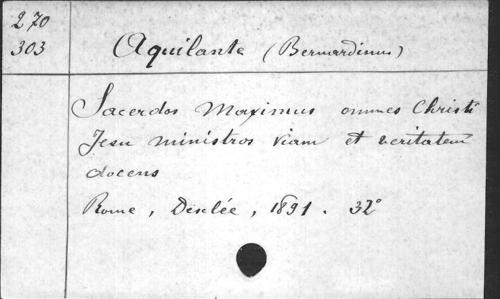 270
303
Aquilante (Bernardinus)
Sacerdos Maximus omnes Christi
Jesu ministros viam et veritatem
docens
Rome, Desclée, 1891. 32°